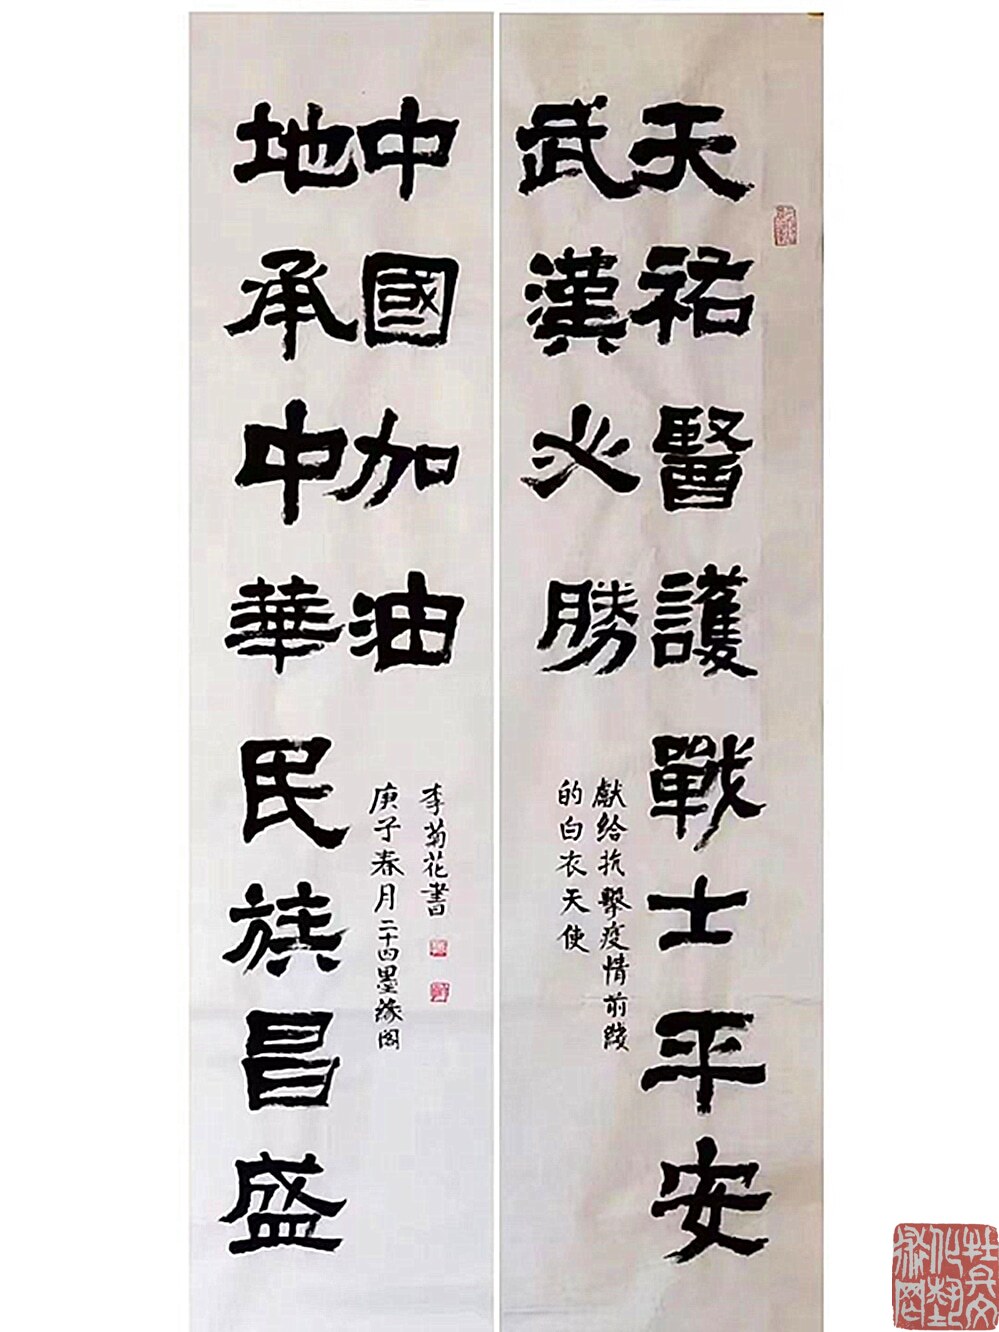 天祐醫護戰士平安
武漢必勝
獻給抗擊疫情前綫
的白衣天使
中國加油
地承中華民族昌盛
李菊花書
庚子春月二十四墨緣閣